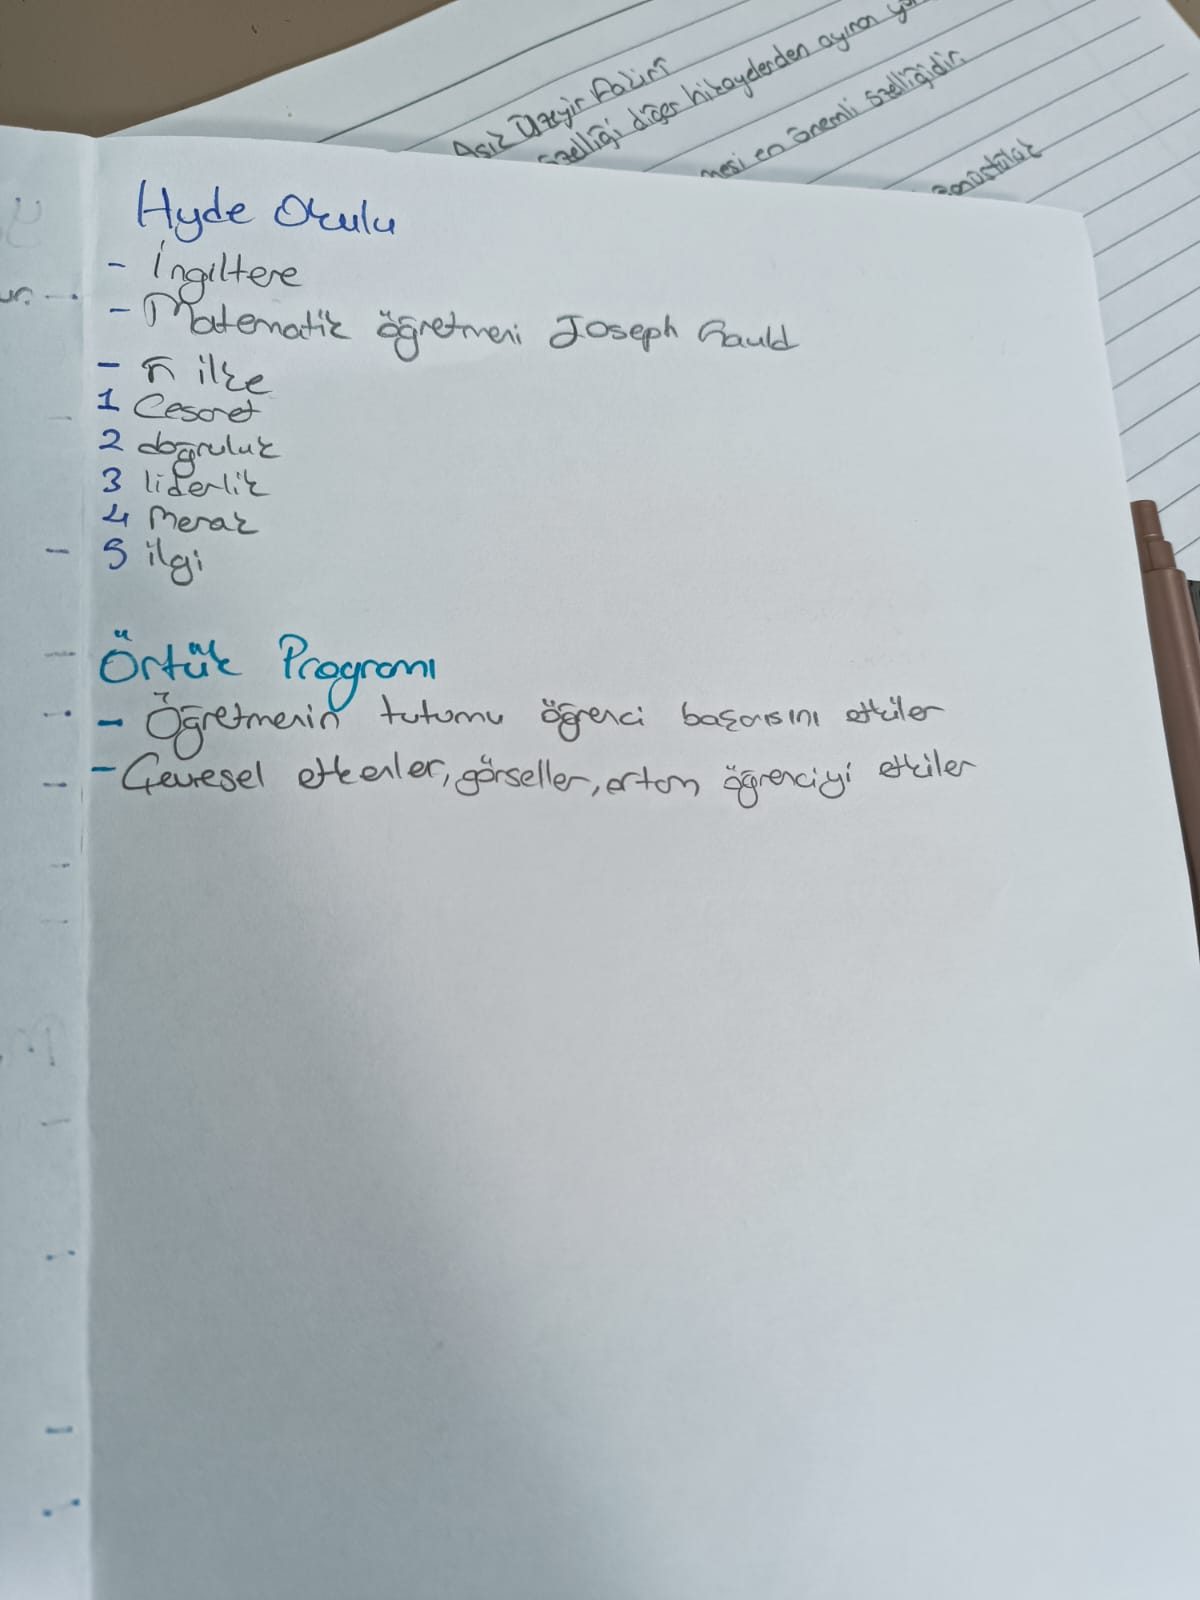 Aşık Üzeyir Fakiri
özelliği diğer hikayelerden ayıran
mesi en önemli özelliğidir.
Hyde Okulu
- İngiltere
- Matematik öğretmeni Joseph Gauld
- 5 ilke
1 Cesaret
2 doğruluk
3 liderlik
4 Merak
5 ilgi
Örtük Programı
- Öğretmenin tutumu öğrenci başarısını etkiler
- Çevresel etkenler, görseller, ortam öğrenciyi etkiler